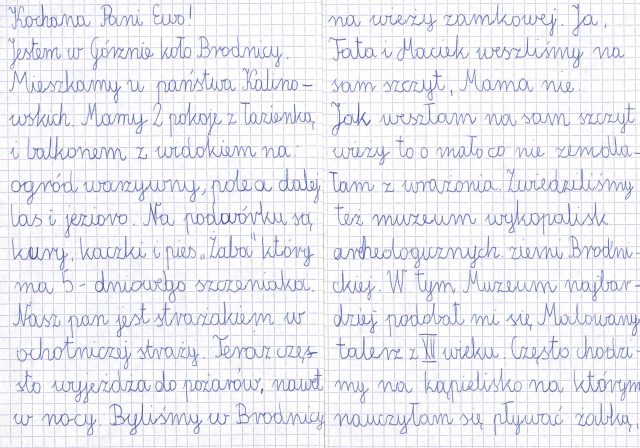 Kochana Pani Ewo!
Jestem w Górznie koło Brodnicy.
Mieszkamy u państwa Kalino-
wskich. Mamy 2 pokoje z łazienką
i balkonem z widokiem na
ogród warzywny, pole a dalej
las i jezioro. Na podwórku są
kury, kaczki i pies „Żaba" który
ma 5-dniowego szczeniaka.
Nasz pan jest strażakiem w
ochotniczej straży. Teraz częs-
sto wyjeżdża do pożarów, nawet
w nocy. Byliśmy w Brodnicy
na wieży zamkowej. Ja,
Tata i Maciek weszliśmy na
sam szczyt, Mama nie.
Jak weszłam na sam szczyt
wieży to o mało co nie zemdla-
łam z wrażenia. Zwiedziliśmy
też muzeum wykopalisk
archeologicznych ziemi Brodni-
ckiej. W tym Muzeum najbar-
dziej podobał mi się Malowany
talerz z XII wieku. Często chodzi-
my na kąpielisko na którym
nauczyłam się pływać żabką,